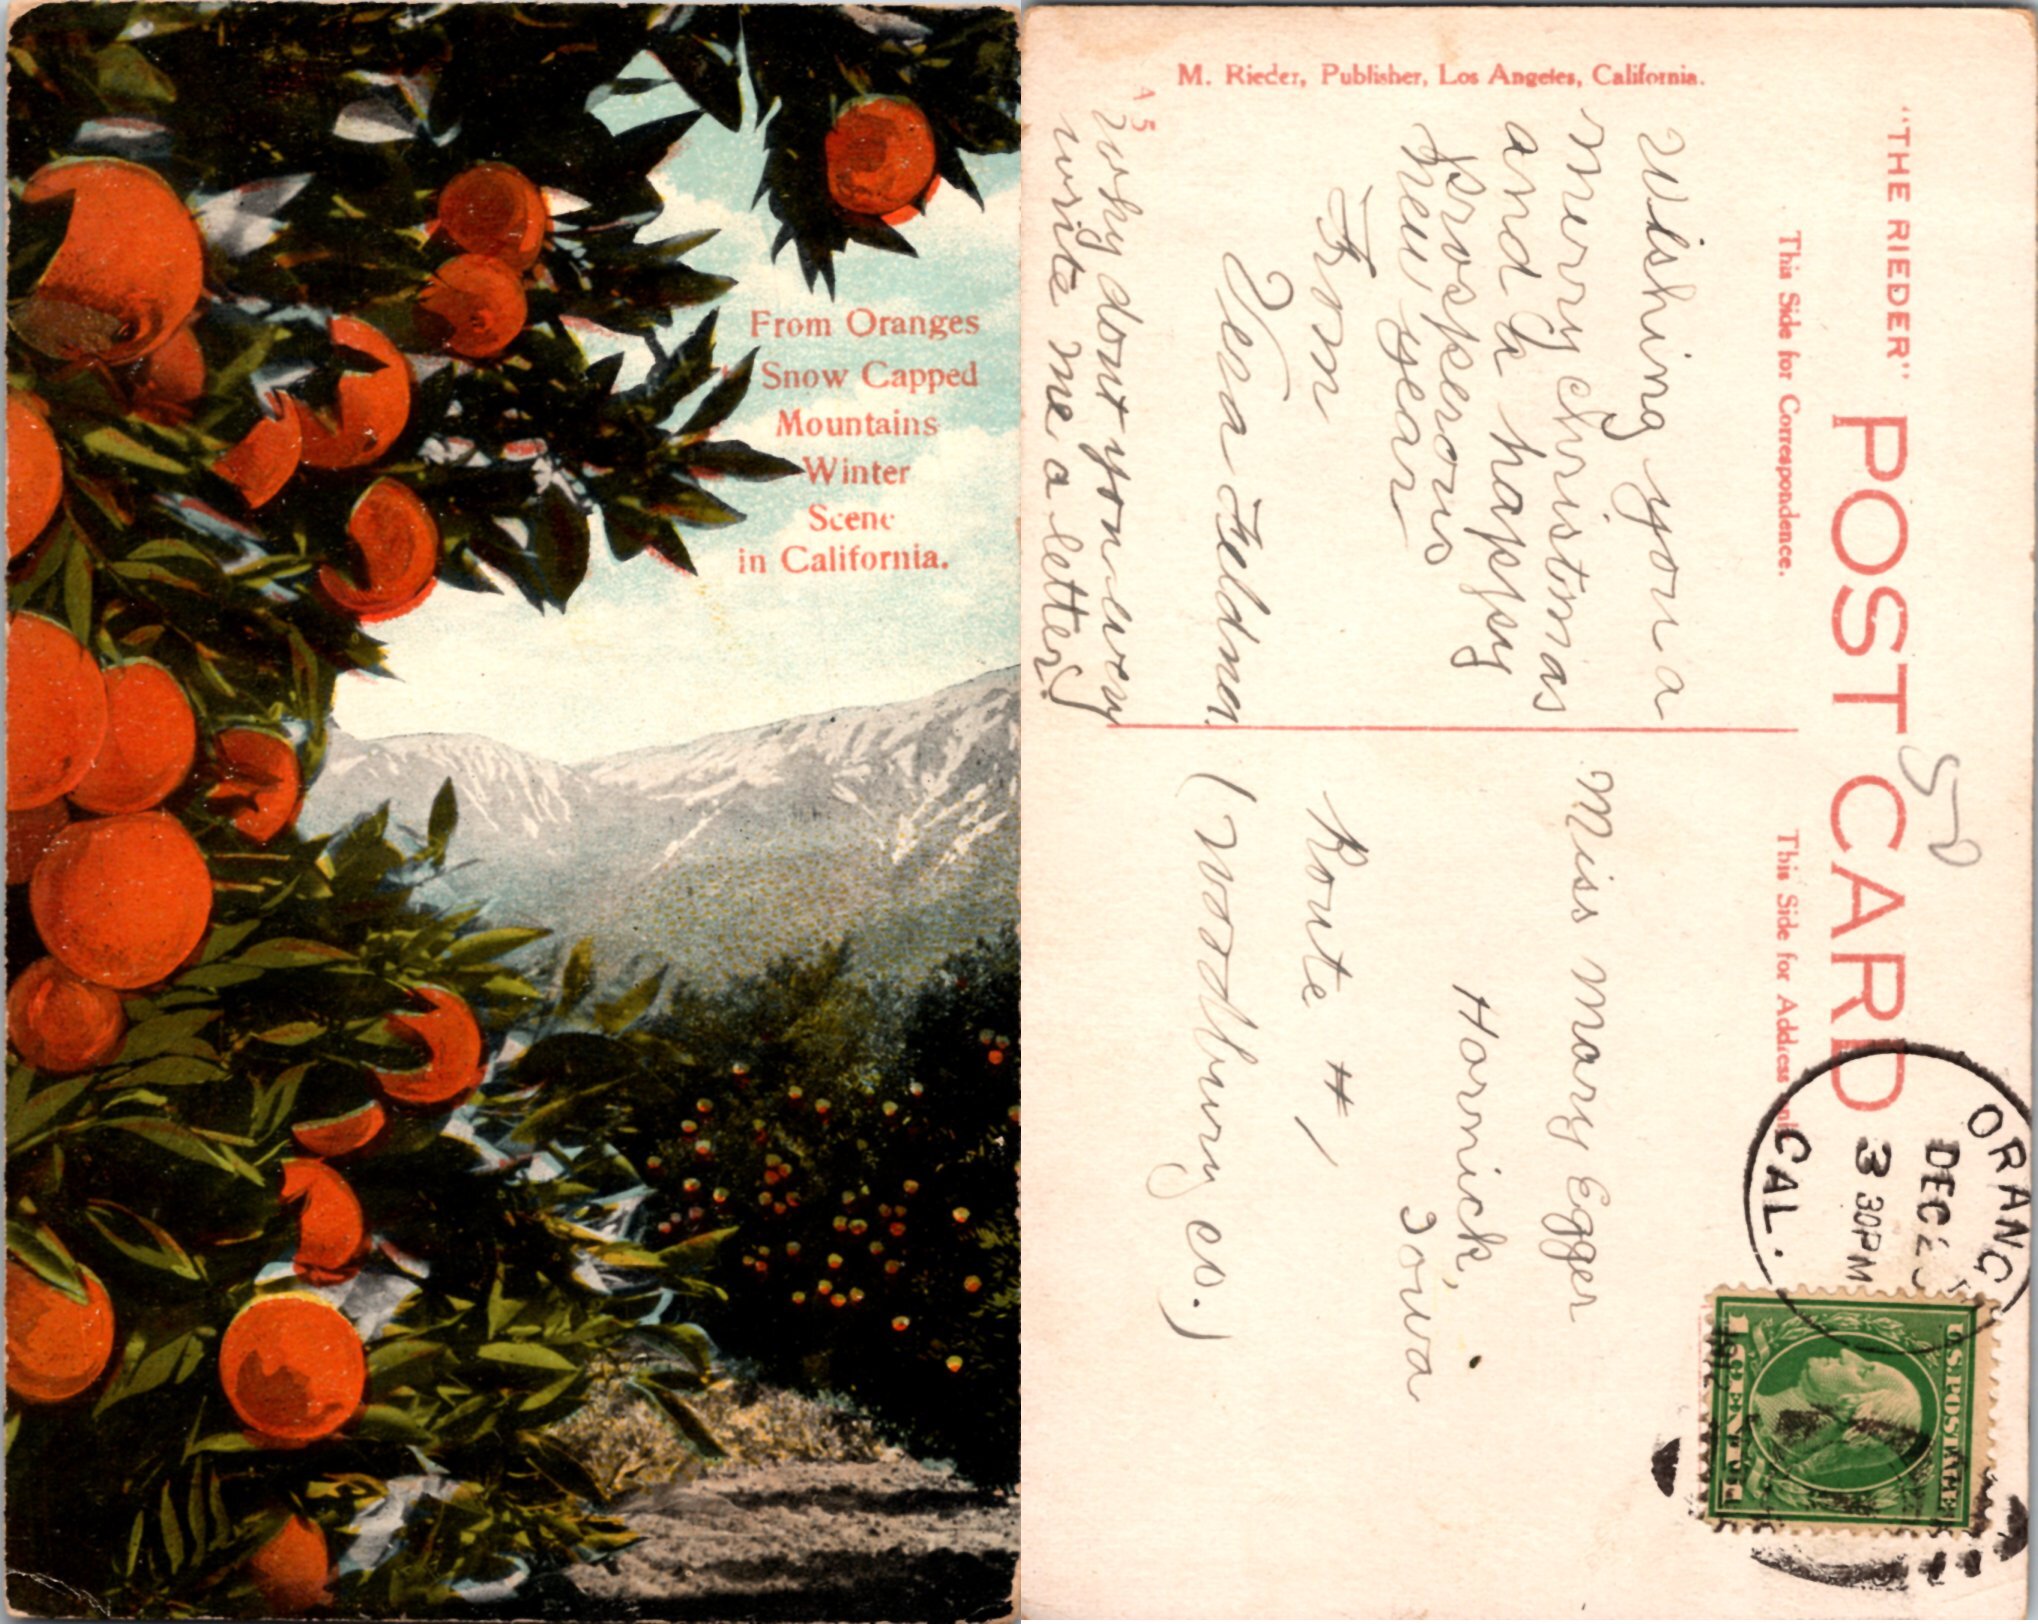 From Oranges
Snow Capped
Mountains
Winter
Scene
in California.
"THE RIEDER" POST CARD
This Side for Correspondence.
This Side for Address
M. Rieder, Publisher, Los Angeles, California.
A 5
50
Wishing you a
merry christmas
and a happy
prosperous
new year
From
Vera Feldman.
Why dont you every
write me a letter?
Miss Mary Egger
Hornick,
Iowa
Route # 1
(Woodbury co.)
ORANG
CAL.
DEC
3 30PM
1912
U.S. POSTAGE
1 CENT 1